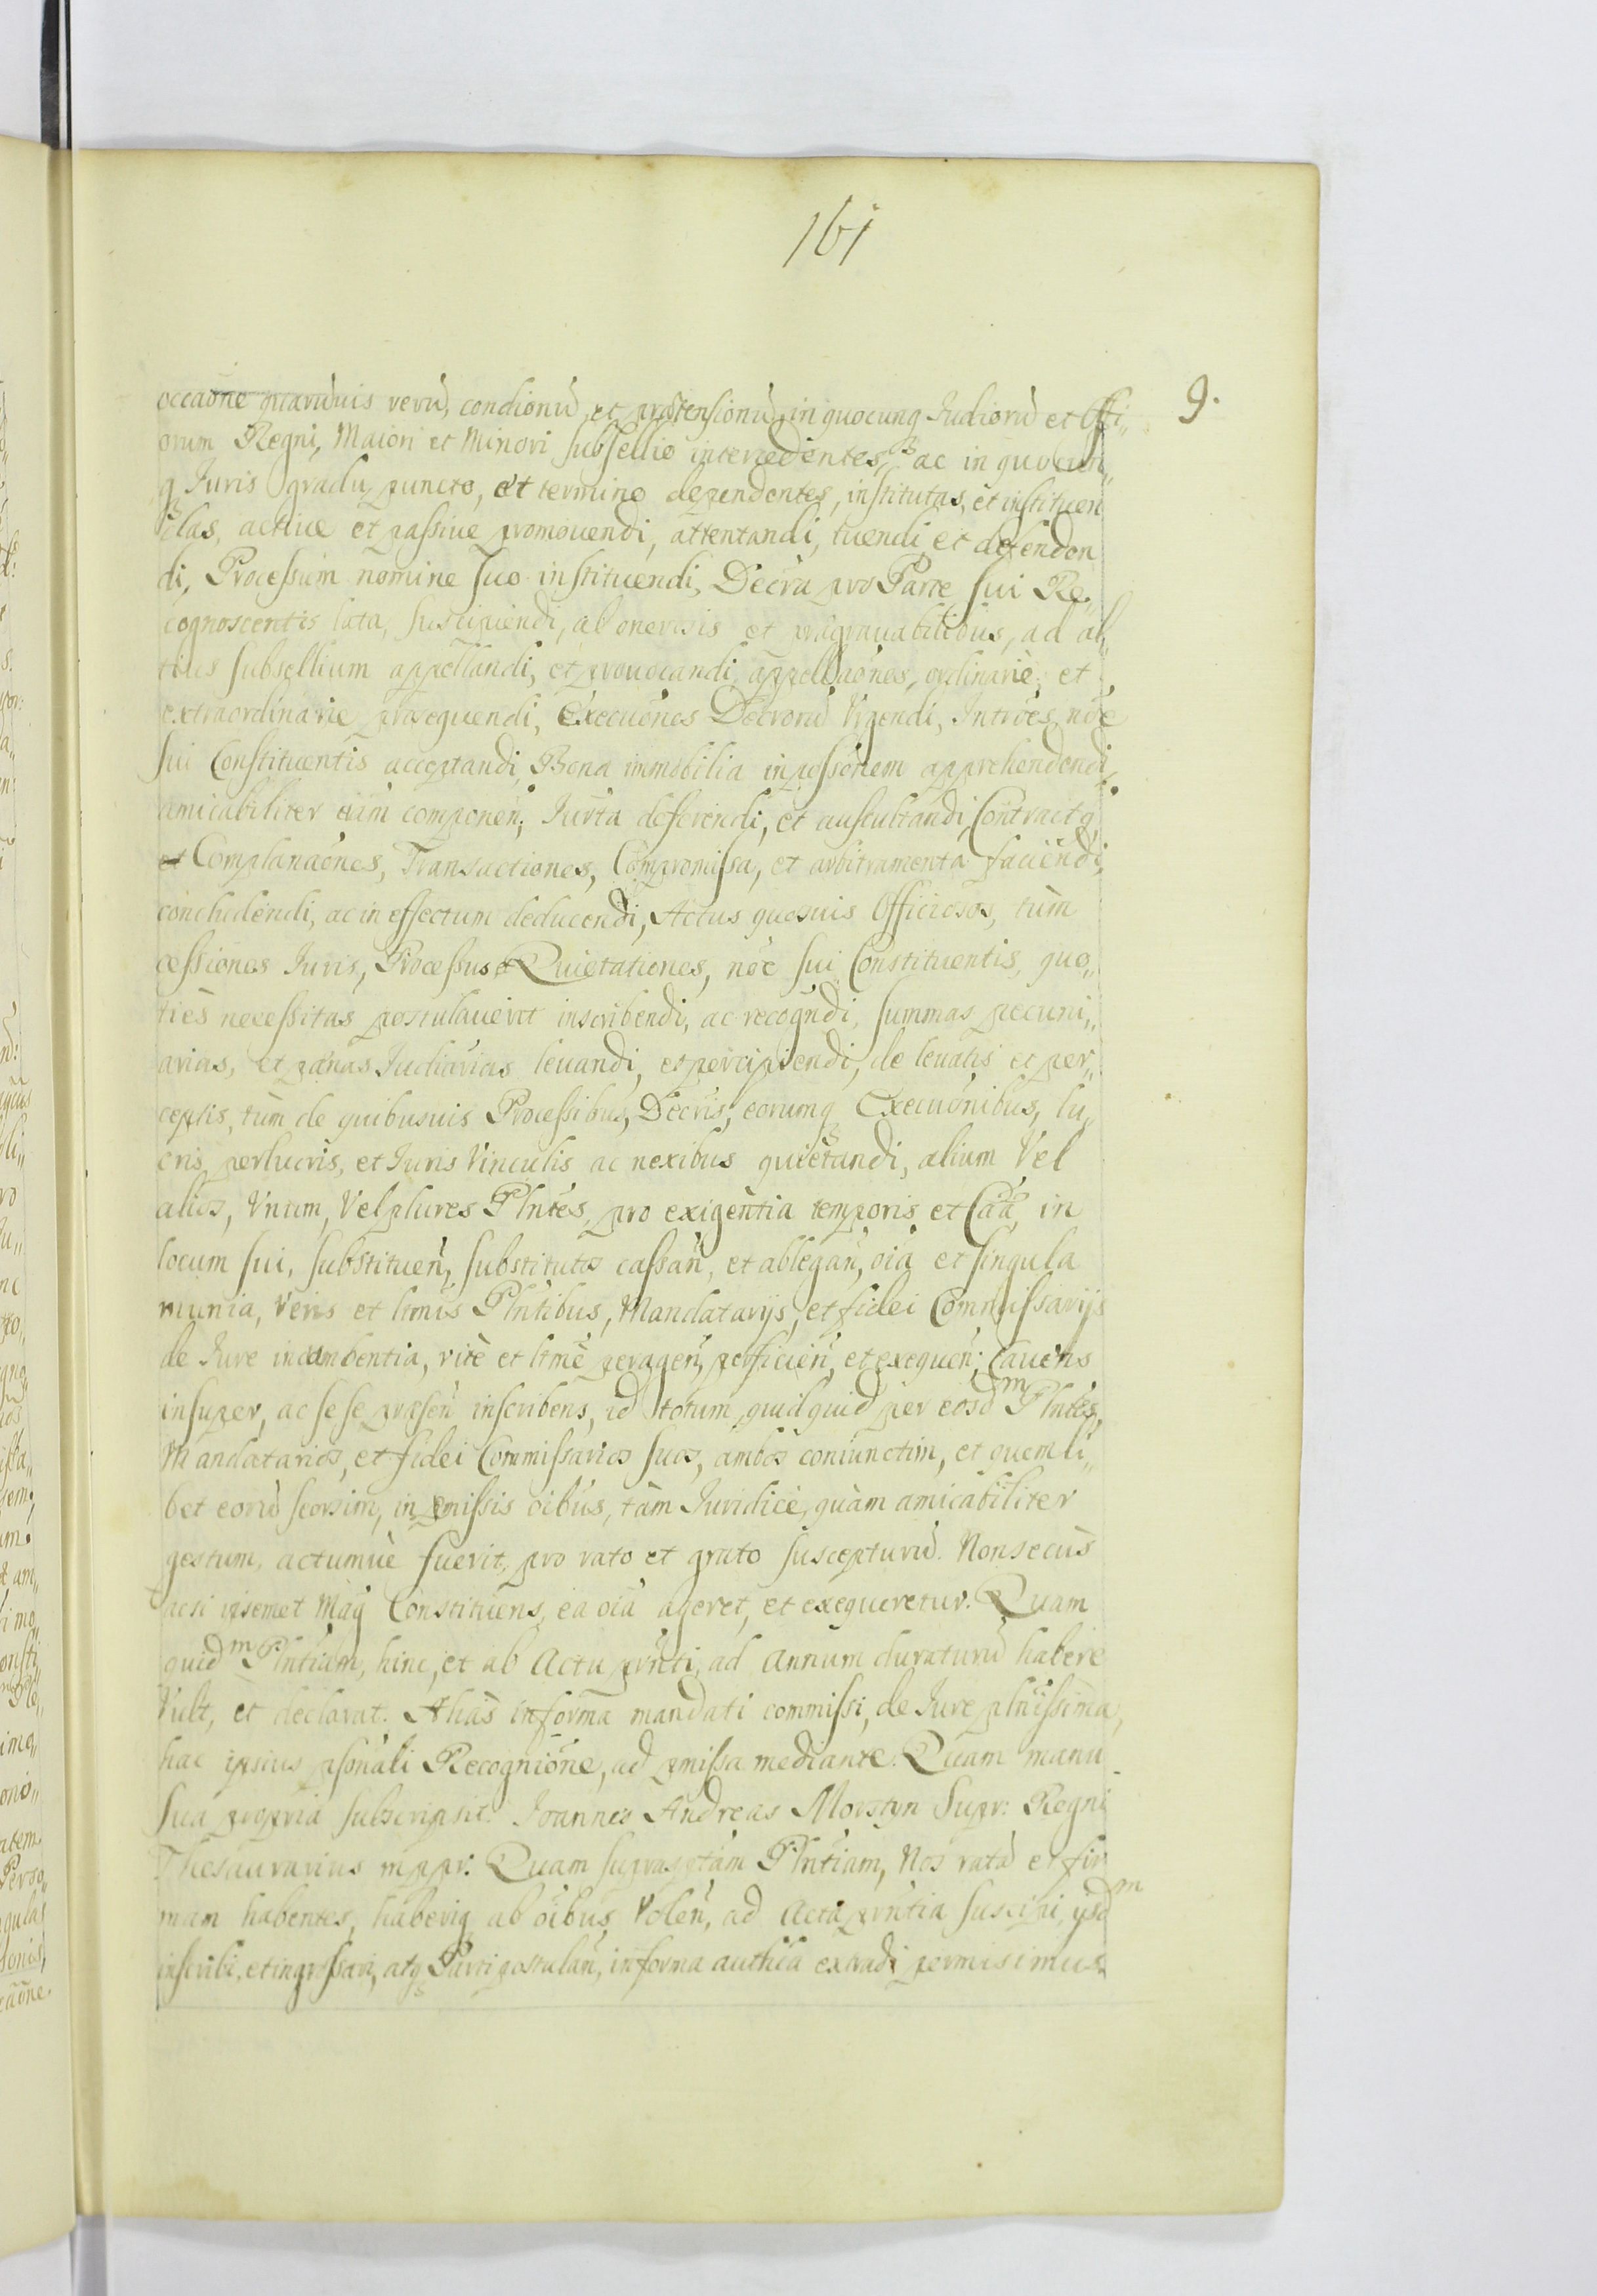 161
9.
occaōne quarūuis rerū, condionū, et prætensionū, in quocunq Judiorū et Offi„
orum Regni, Maiori et Minori subsellio intercedentes, ac in quocun„
q Juris gradu, puncto, et termino dependentes, institutas, et instituen
das, actiue et passiue promouendi, attentandi, tuendi, et defenden
di, Processum nomine suo instituendi, Decra pro Parte sui Re„
cognoscentis lata, suscipiendi, ab onerosis et prægrauabilibus, ad al„
tius subsellium appellandi, et prouocandi, appellaōnes, ordinarie, et
extraordinarie prosequendi, Execuōnes Decrorū Vrgendi, Intrōes nōe
sui Constituentis acceptandi, Bona immobilia in possōnem apprehendendi,
amicabiliter etim componeñ, Iurta deferendi, et auscultandi, Contractq
et Complanaōnes, Transactiones, Compromissa, et arbitramenta faciendi,
concludendi, ac in effectum deducendi, Actus quosuis Officiosos, tùm
cessiones Iuris, Processus et Quietationes, nōe sui Constituentis, quo„
tiès necessitas postulauerit inscribendi, ac recogñdi, summas pecuni„
arias, et pænas Iudiarias leuandi, et percipiendi, de leuatis et per„
ceptis, tùm de quibusuis Processibus, Decris, eorumq Execuōnibus, lu„
cris, perlucris, et Iuris Vinculis ac nexibus quietandi, alium Vel
alios, Vnum, Vel plures Plntes, pro exigentia temporis et Cāæ, in
locum sui, substitueñ, substitutos cassañ, et ablegañ, oīa et singula
munia, veris et ltmis Plntibus, Mandatarijs, et fidei Commissarijs
de Iure incumbentia, ritè et ltmè perageñ, perficieñ, et exequeñ; Cauens
insuper, ac sese præseñ inscribens, id totum, quidquid per eosdm Plntes,
Mandatarios, et fidei Commissarios suos, ambos coniunctim, et quemli„
bet eorū seorsim, in pmissis oibus, tàm Iuridicè, quàm amicabiliter
gestum, actumuè fuerit, pro rato et grato suscepturū. Non secùs
ac si ipsemet Mag Constituens, ea oīa ageret, et exequeretur. Quam
quidm Plntiam, hinc, et ab Actu prnti, ad Annum duraturū habere
Vult, et declarat. Aliàs in forma mandati commissi, de Iure plnissima,
hac ipsius psonali Recogniōne, ad pmissa mediante. Quam manu
sua propria subscripsit. Ioannes Andreas Morstyn Supr: Regni
Thesaurarius mppr: Quam suprasptam Plntiam, Nos ratā et fir
mam habentes, haberiq ab oibus Voleñ, ad Acta prntia suscipi, ijsdm
inscribi, et ingrossari, atq Parti postulañ, in forma authea extradi permisimus.